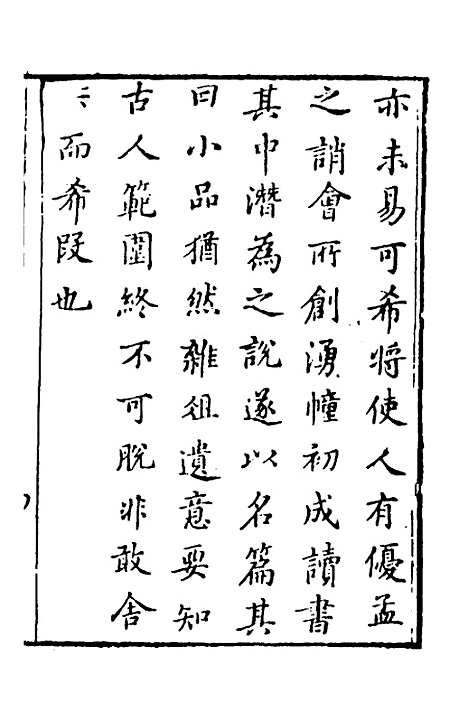 亦未易可希将使人有優孟
之誚會所創湧幢初成讀書
其中潛為之說遂以名篇其
曰小品猶然雜俎遺意要知
古人範圍終不可脫非敢舍
〻而希段也